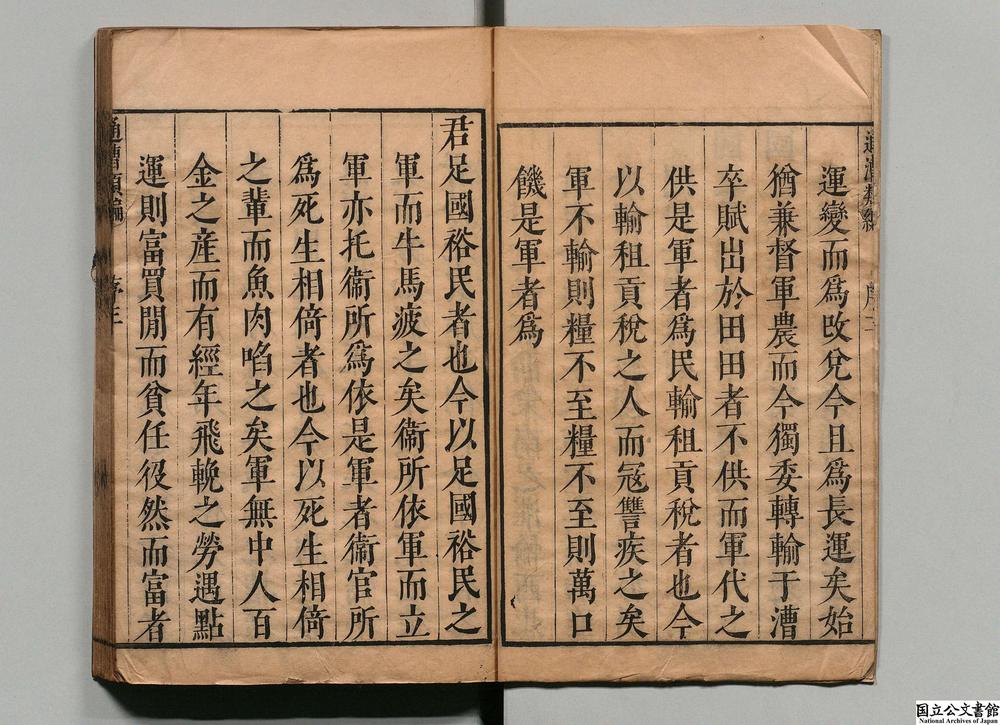 通漕類編
運變而爲攺兌今且爲長運矣始
猶兼督軍農而今獨委轉輸于漕
卒賦出於田田者不供而軍代之
供是軍者爲民輸租貢稅者也今
以輸租貢稅之人而冦讐疾之矣
軍不輸則糧不至糧不至則萬口
饑是軍者爲
君足國裕民者也今以足國裕民之
軍而牛馬疲之矣衞所依軍而立
軍亦托衞所爲依是軍者衞官所
爲死生相倚者也今以死生相倚
之輩而魚肉啗之矣軍無中人百
金之産而有經年飛輓之勞遇點
運則富買閒而貧任役然而富者
通漕類編 序三
国立公文書館
National Archives of Japan